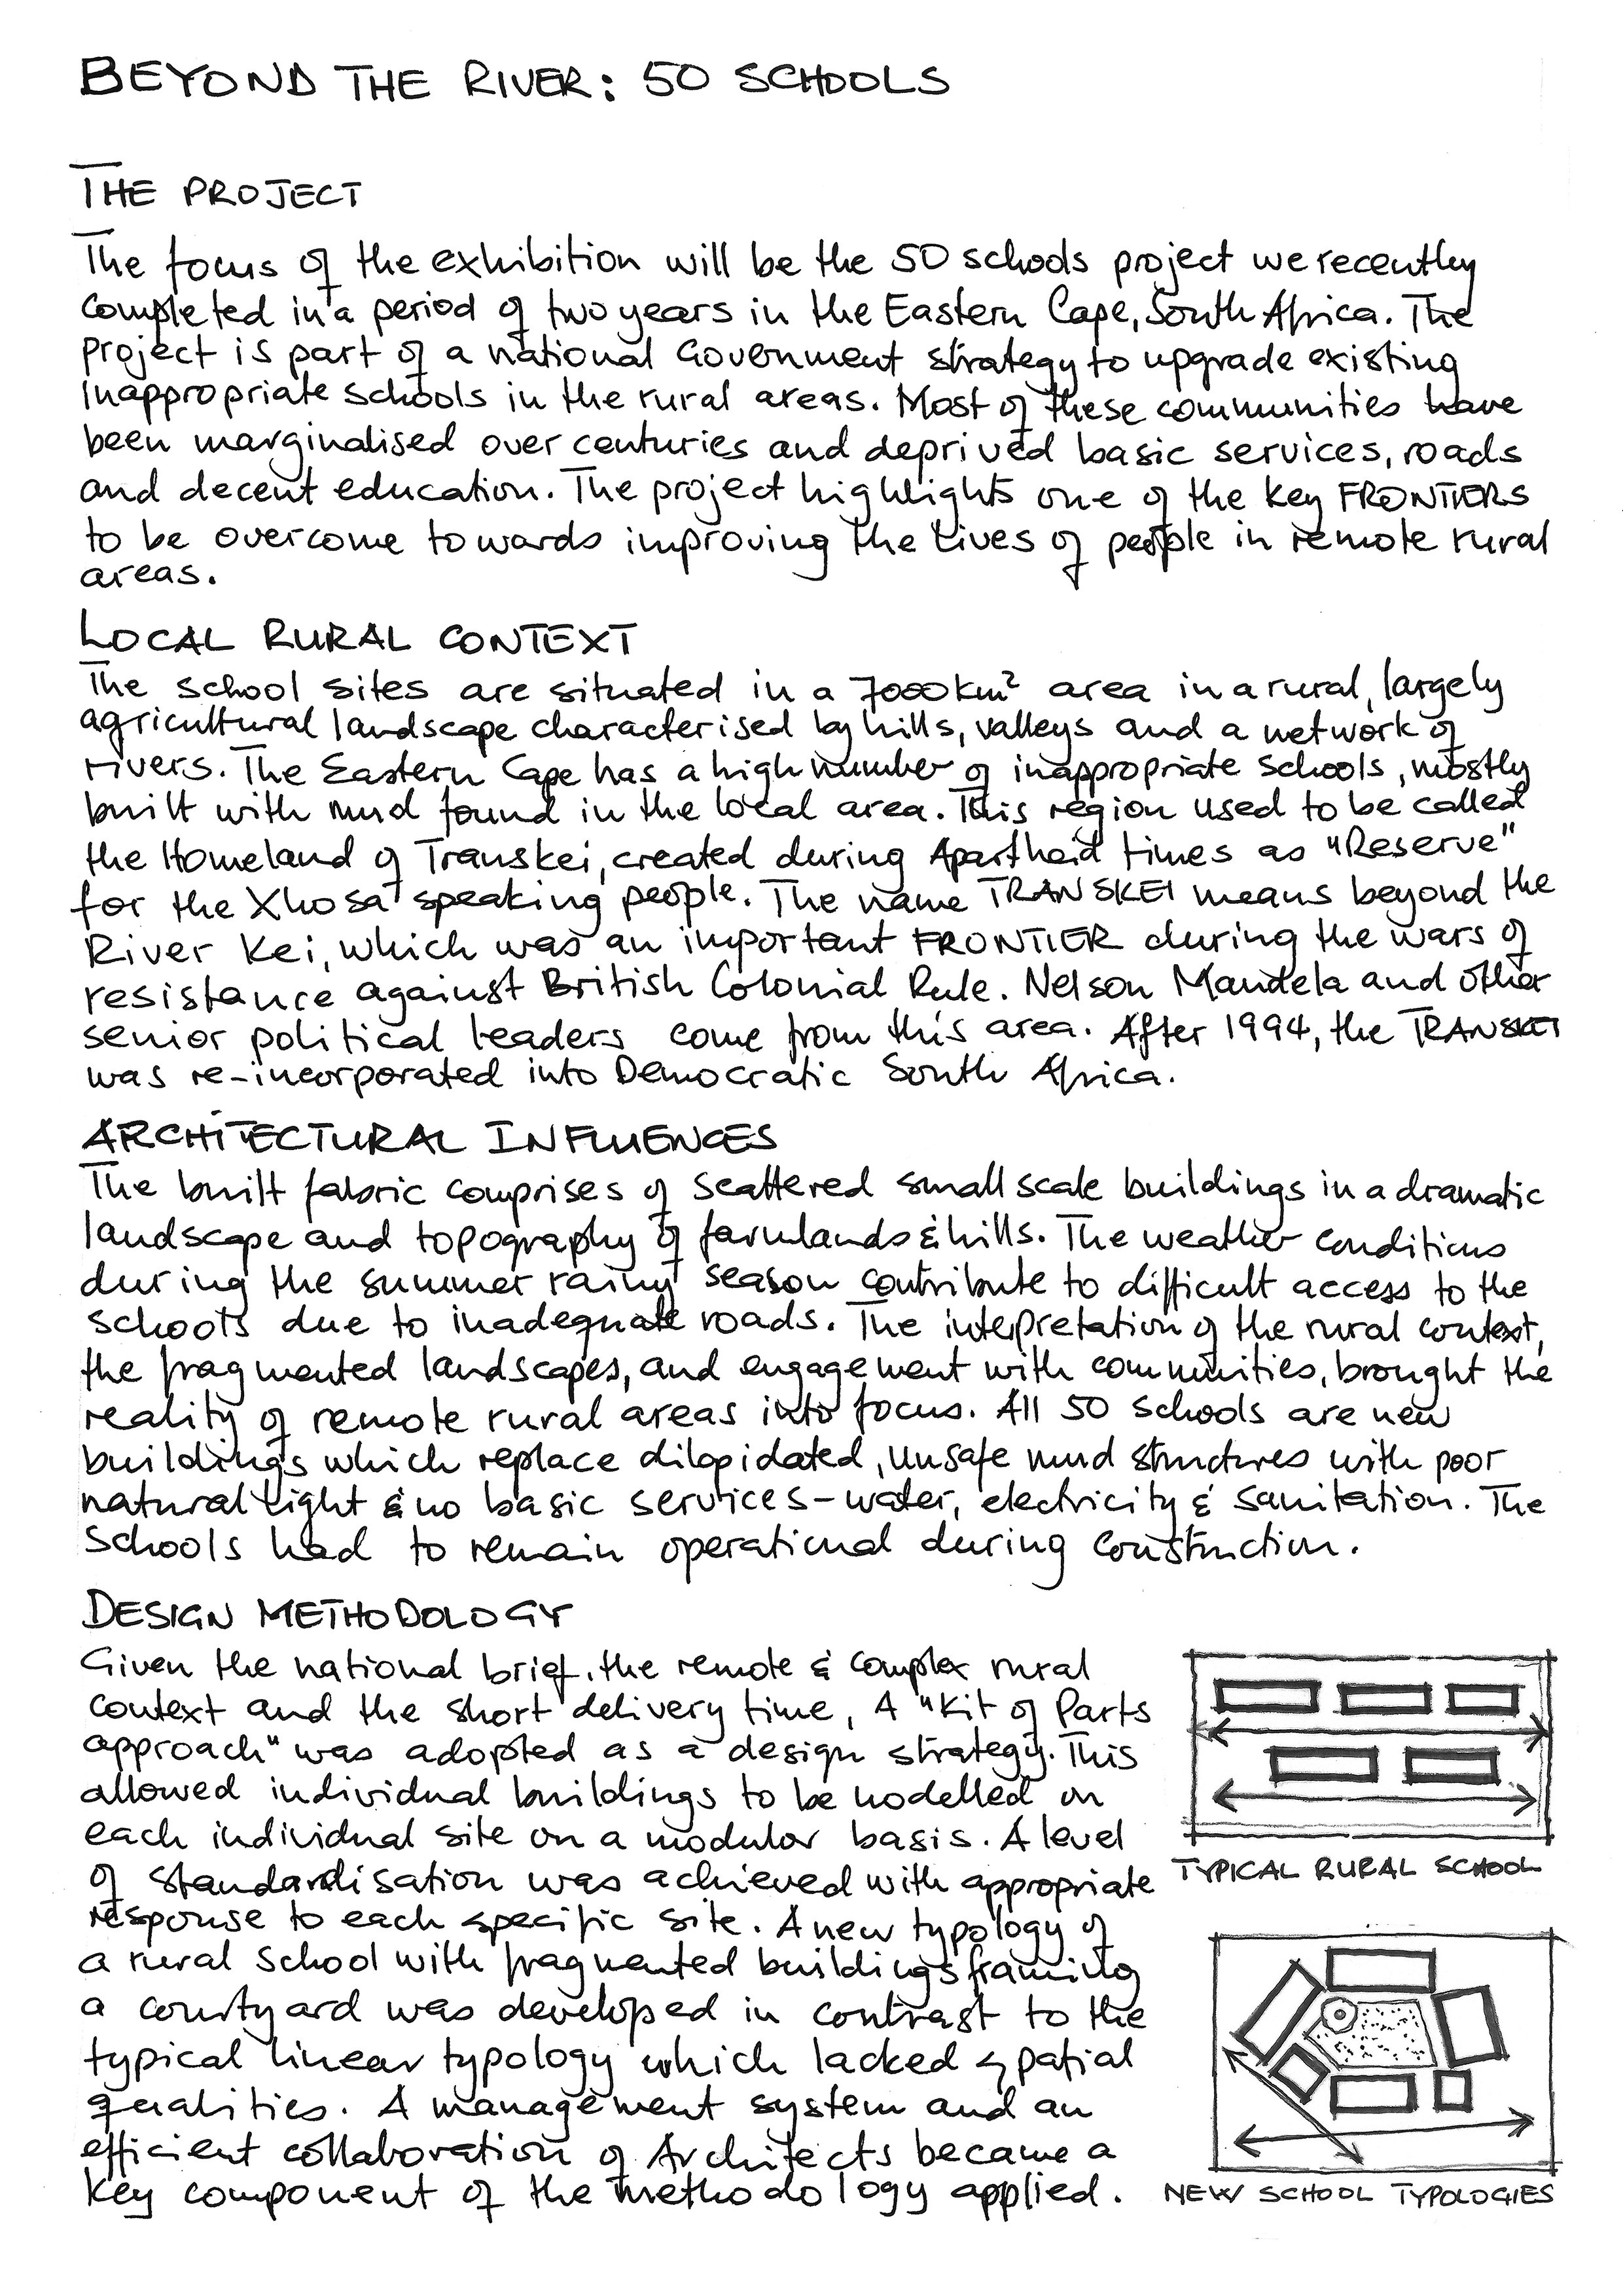 BEYOND THE RIVER: 50 SCHOOLS
THE PROJECT
The focus of the exhibition will be the 50 schools project we recently
completed in a period of two years in the Eastern Cape, South Africa. The
project is part of a national Government strategy to upgrade existing
inappropriate schools in the rural areas. Most of these communities have
been marginalised over centuries and deprived basic services, roads
and decent education. The project highlights one of the key FRONTIERS
to be overcome towards improving the lives of people in remote rural
areas.
LOCAL RURAL CONTEXT
The school sites are situated in a 7000km² area in a rural, largely
agricultural landscape characterised by hills, valleys and a network of
rivers. The Eastern Cape has a high number of inappropriate schools, mostly
built with mud found in the local area. This region used to be called
the Homeland of Transkei, created during Apartheid times as "Reserve"
for the Xhosa speaking people. The name TRANSKEI means beyond the
River Kei, which was an important FRONTIER during the wars of
resistance against British Colonial Rule. Nelson Mandela and other
senior political leaders come from this area. After 1994, the TRANSKEI
was re-incorporated into Democratic South Africa.
ARCHITECTURAL INFLUENCES
The built fabric comprises of scattered small scale buildings in a dramatic
landscape and topography of farmlands & hills. The weather conditions
during the summer rainy season contribute to difficult access to the
schools due to inadequate roads. The interpretation of the rural context,
the fragmented landscapes, and engagement with communities, brought the
reality of remote rural areas into focus. All 50 schools are new
buildings which replace dilapidated, unsafe mud structures with poor
natural light & no basic services - water, electricity & sanitation. The
schools had to remain operational during construction.
DESIGN METHODOLOGY
Given the national brief, the remote & complex rural
context and the short delivery time, A "Kit of Parts
approach" was adopted as a design strategy. This
allowed individual buildings to be modelled on
each individual site on a modular basis. A level
of standardisation was achieved with appropriate
response to each specific site. A new typology of
a rural school with fragmented buildings framing
a courtyard was developed in contrast to the
typical linear typology which lacked spatial
qualities. A management system and an
efficient collaboration of Architects became a
key component of the methodology applied.
TYPICAL RURAL SCHOOL
NEW SCHOOL TYPOLOGIES